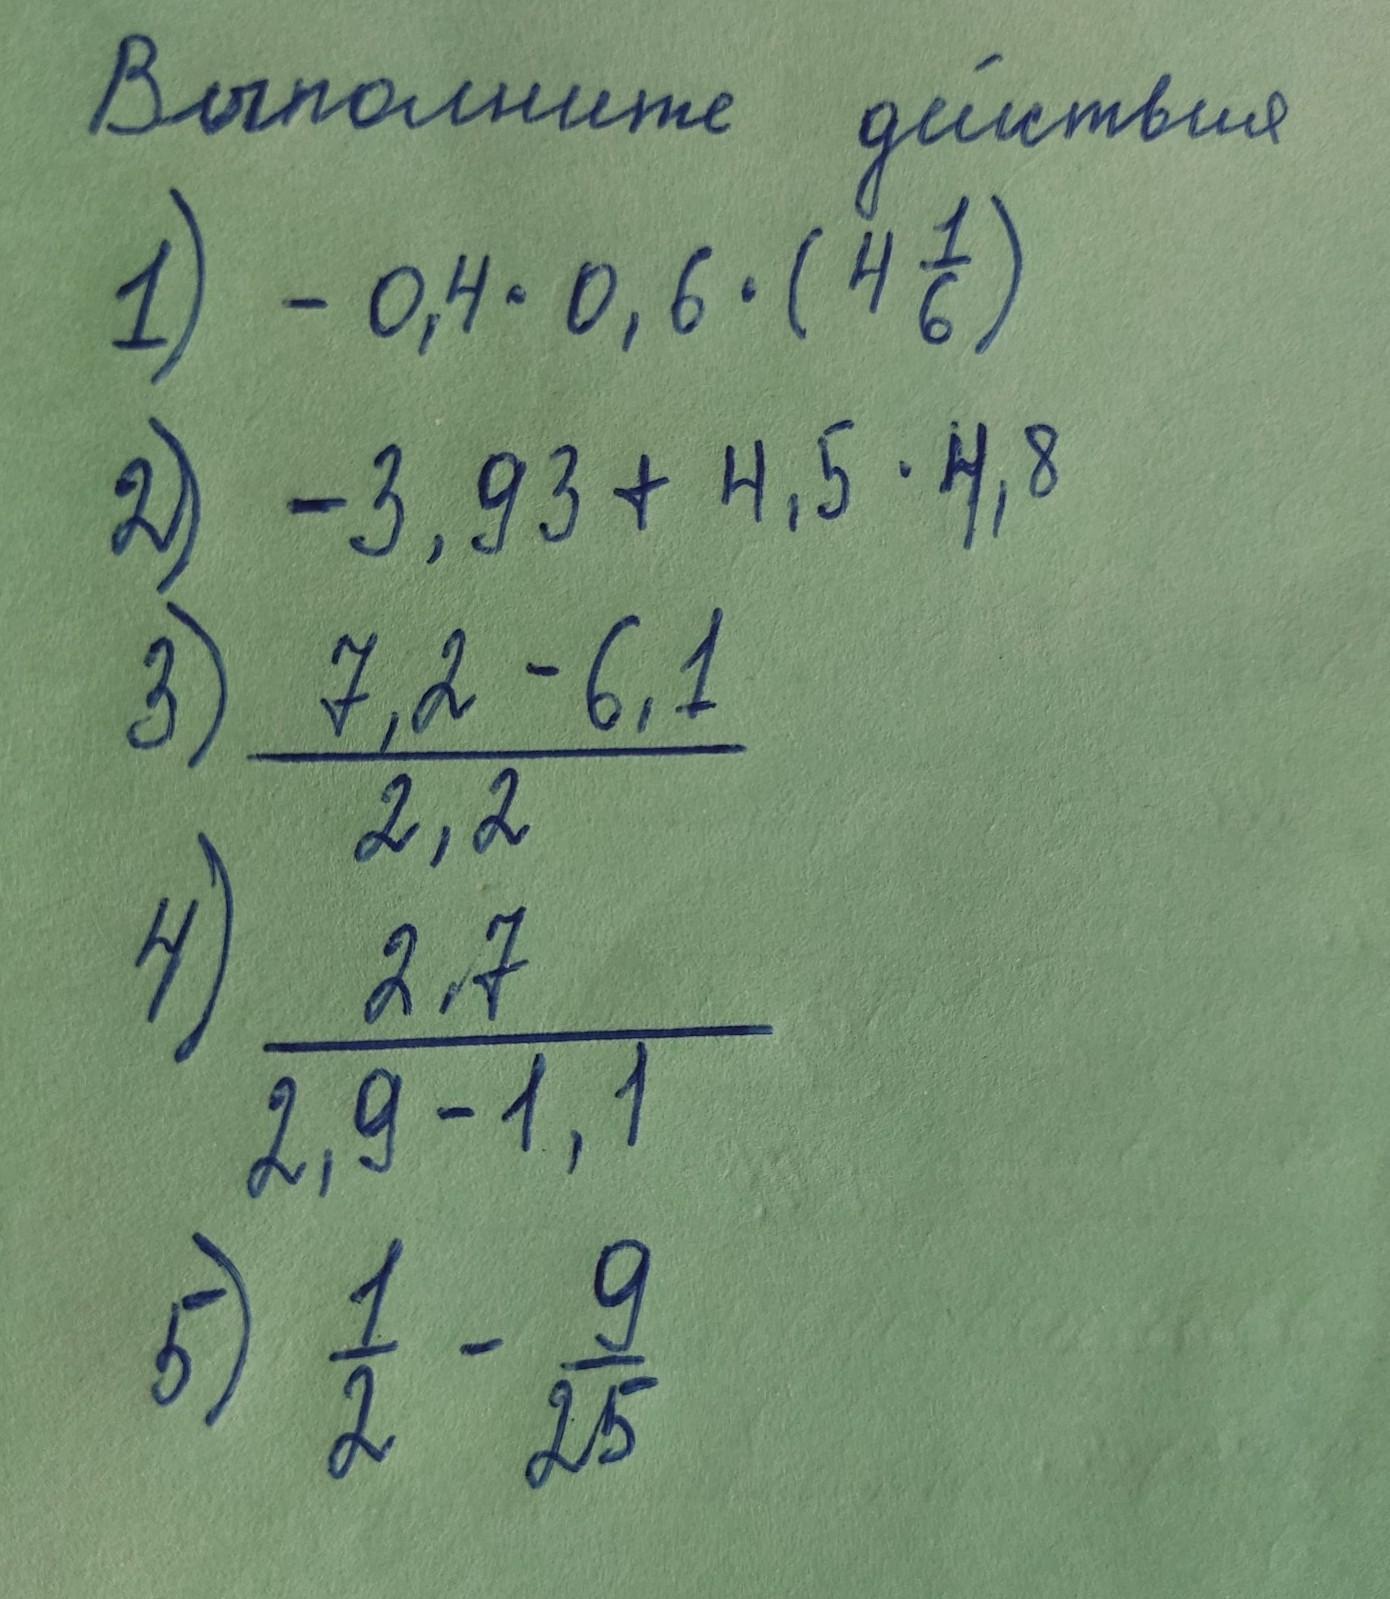 Выполните действия
1) - 0,4 · 0,6 · (4 1/6)
2) -3,93 + 4,5 · 4,8
3) 7,2 - 6,1
2,2
4) 2,7
2,9 - 1,1
5) 1/2 - 9/25